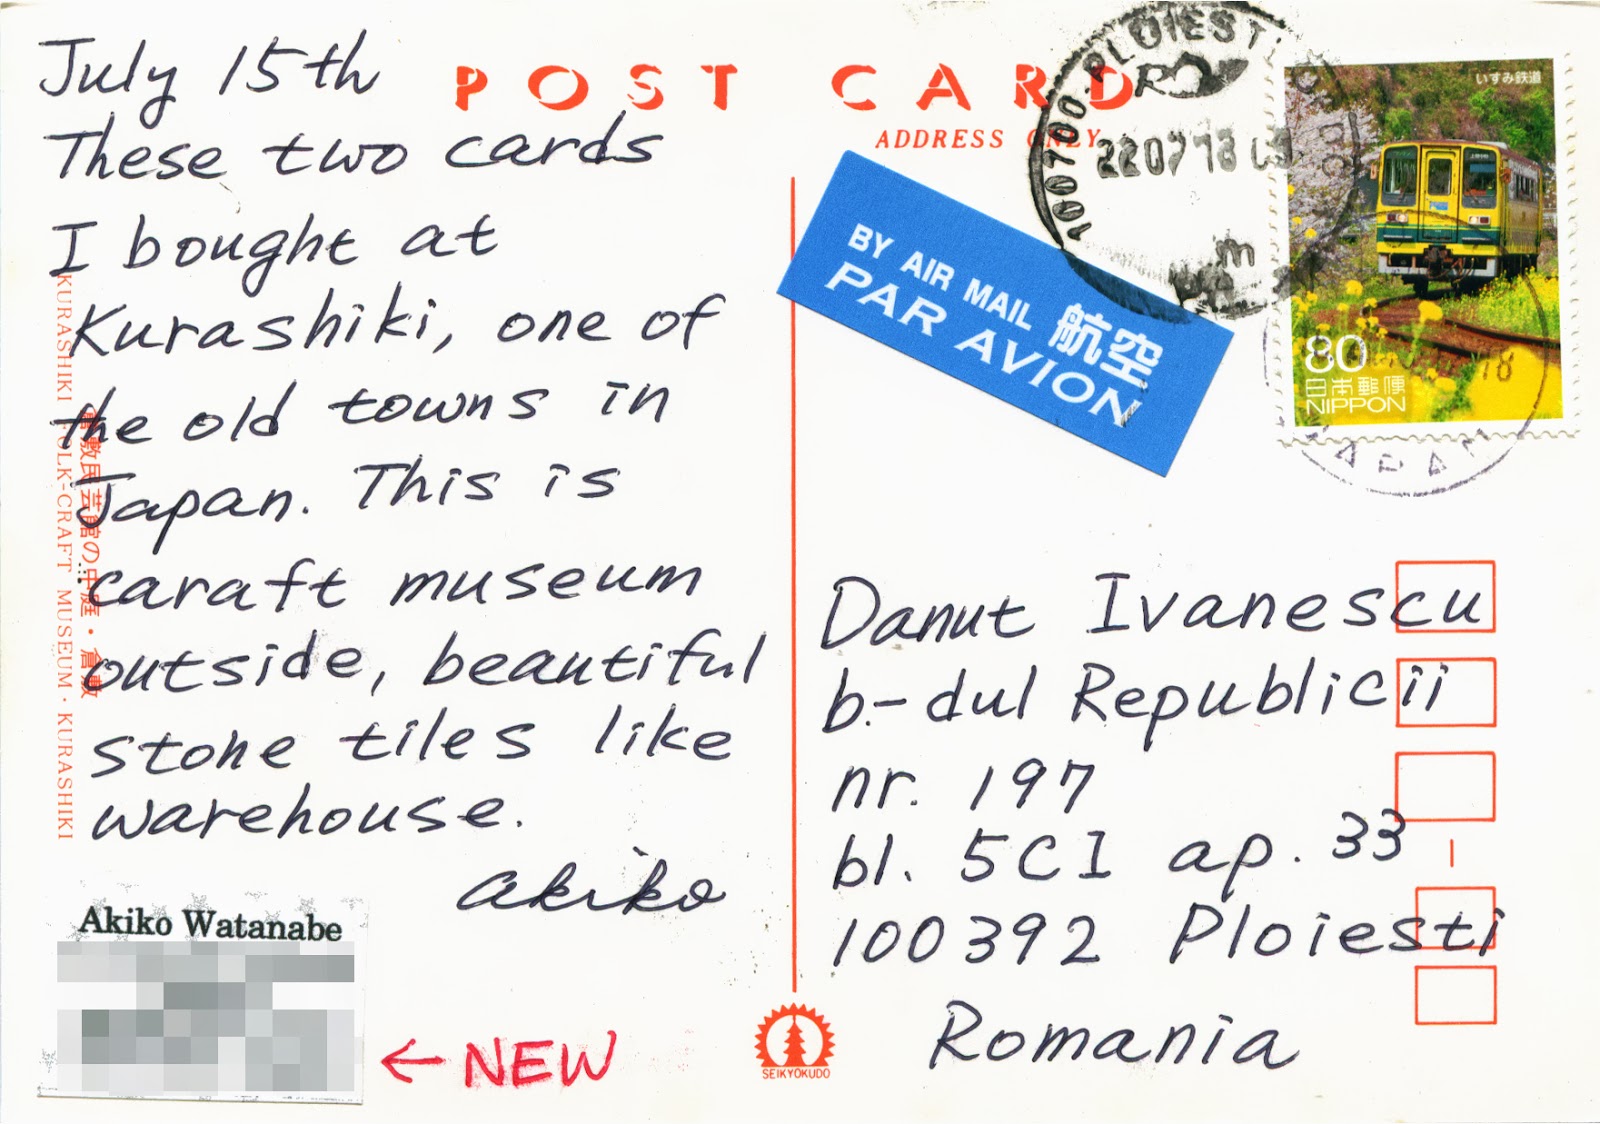 July 15th
These two cards
I bought at
Kurashiki, one of
the old towns in
Japan. This is
caraft museum
outside, beautiful
stone tiles like
warehouse.
akiko
Akiko Watanabe
← NEW
倉敷民芸館の中庭・倉敷
KURASHIKI FOLK-CRAFT MUSEUM・KURASHIKI
POST CARD
ADDRESS ONLY
BY AIR MAIL 航空
PAR AVION
100700-PLOIESTI
220718
いすみ鉄道
80
日本郵便
NIPPON
JAPAN
Danut Ivanescu
b.-dul Republicii
nr. 197
bl. 5CI ap. 33
100392 Ploiesti
Romania
SEIKYOKUDO